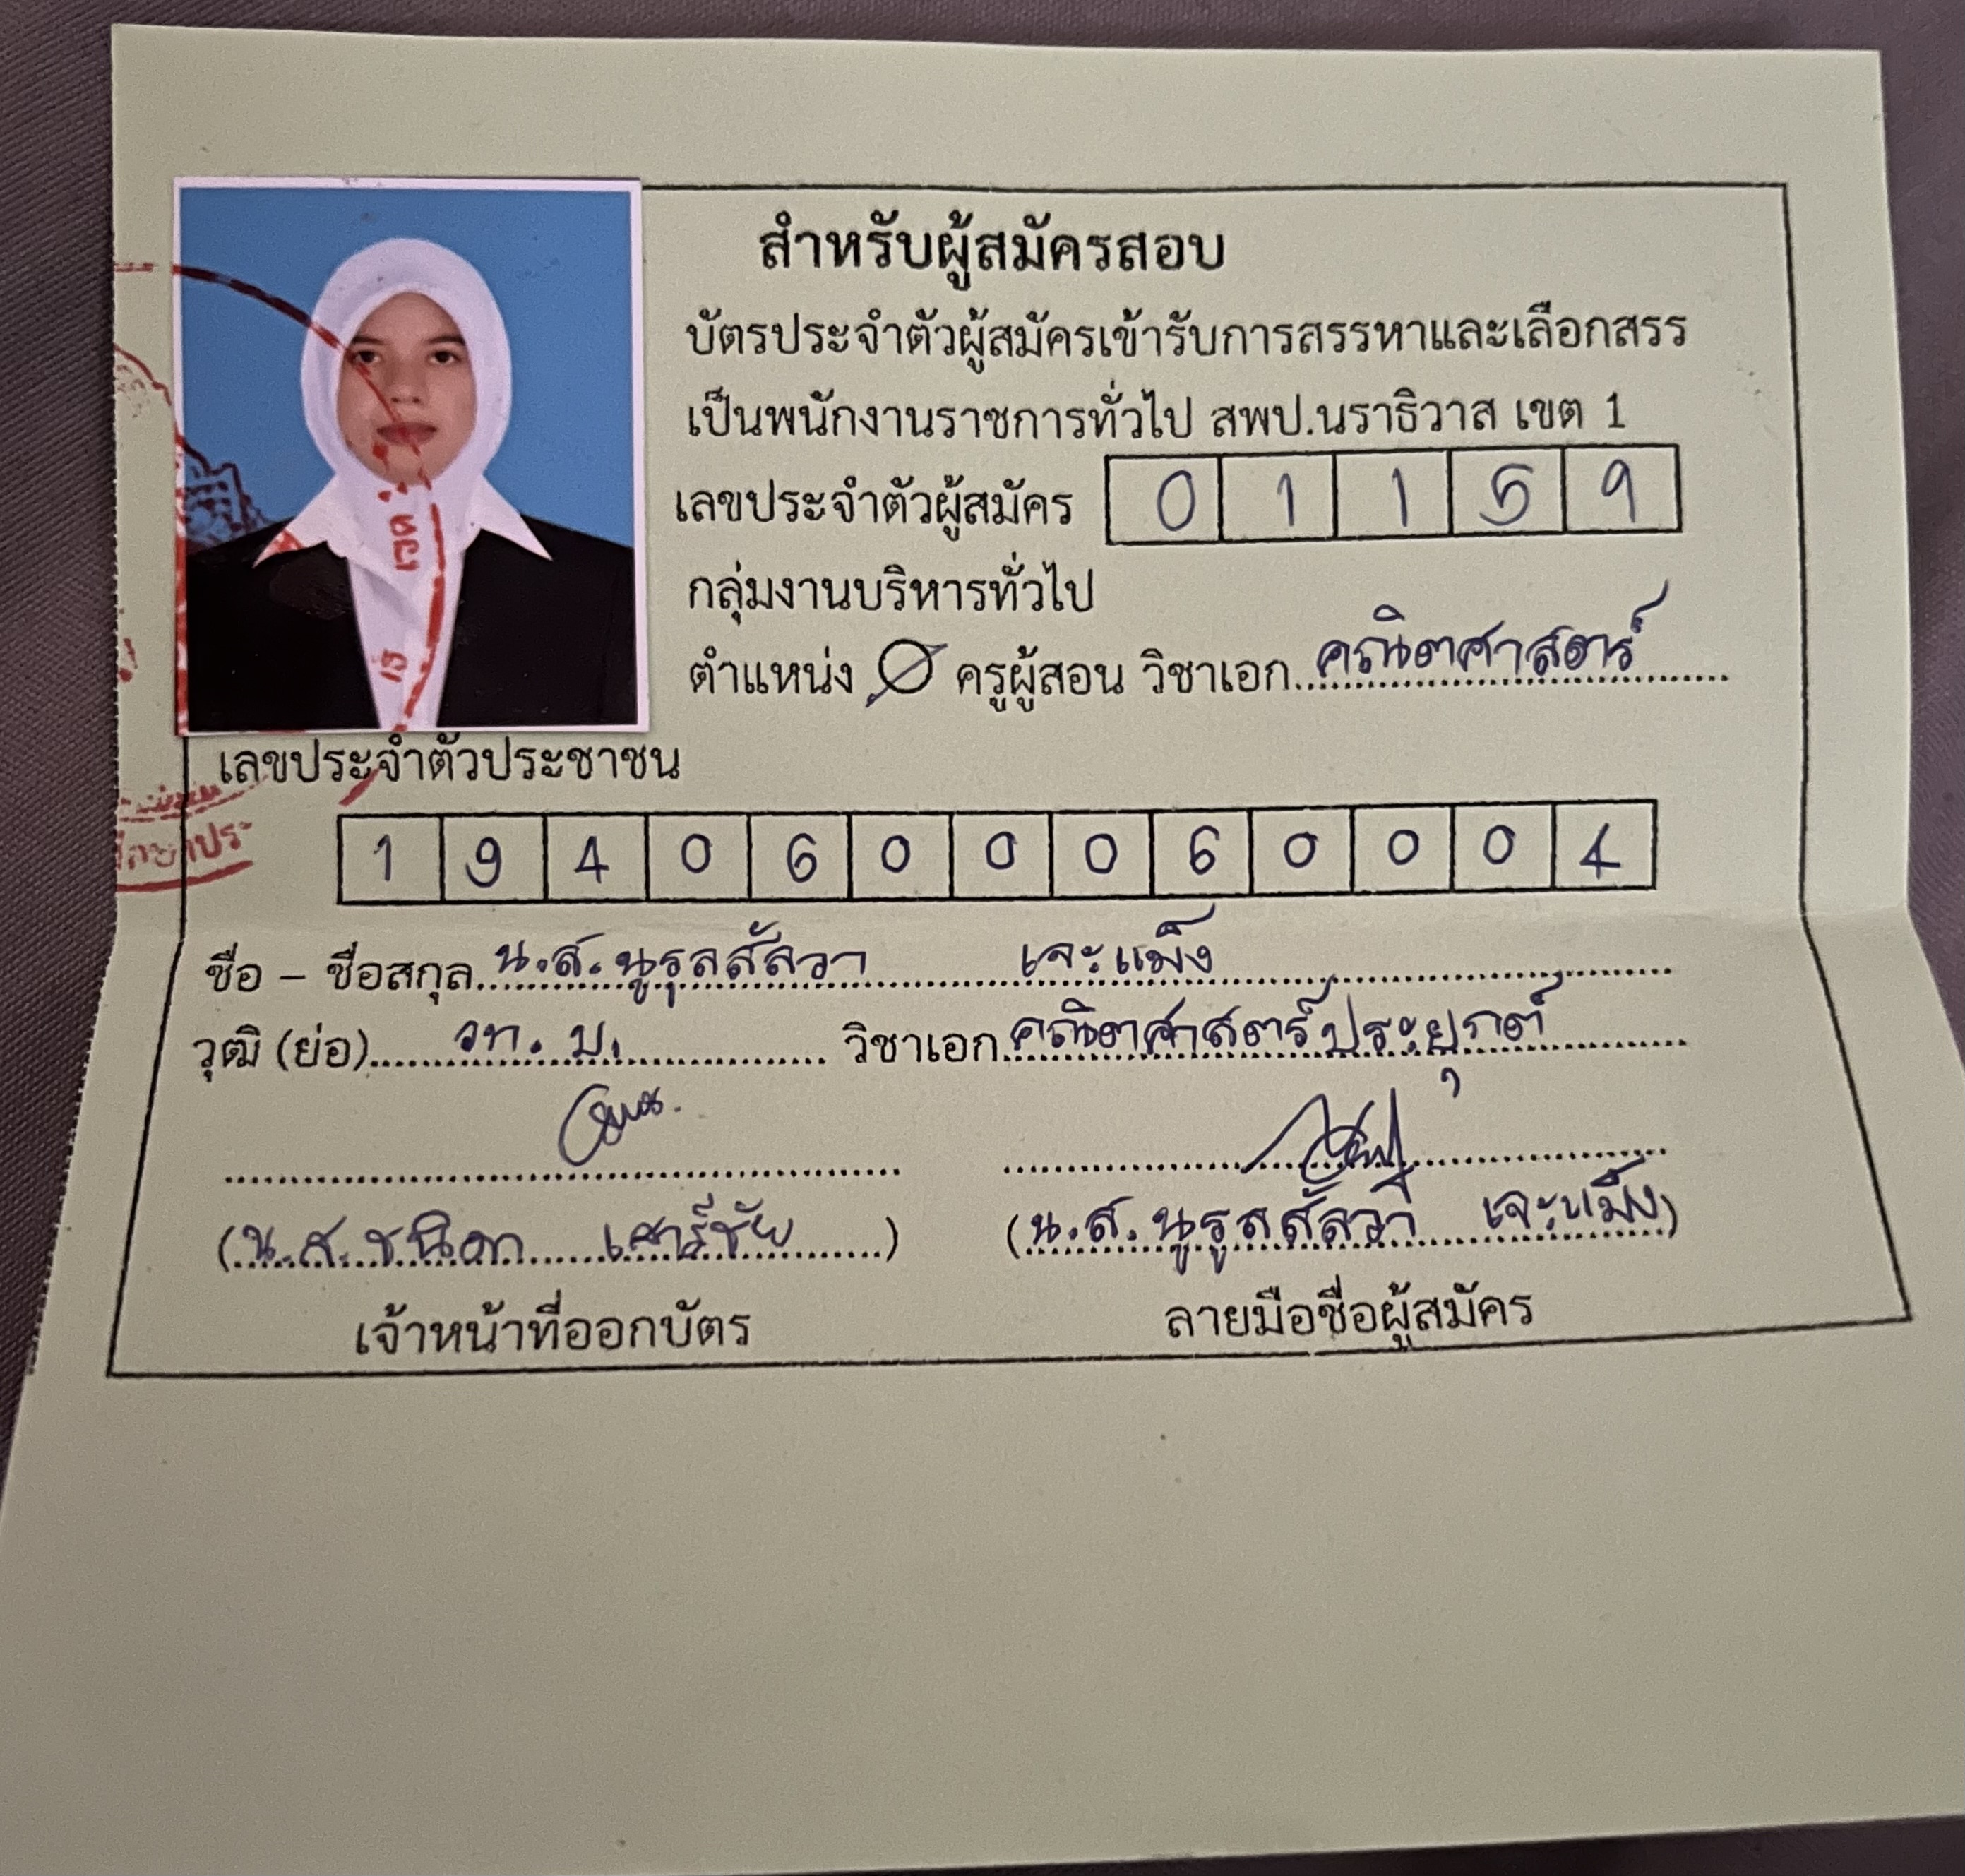 สำหรับผู้สมัครสอบ
บัตรประจำตัวผู้สมัครเข้ารับการสรรหาและเลือกสรร
เป็นพนักงานราชการทั่วไป สพป.นราธิวาส เขต 1
เลขประจำตัวผู้สมัคร 0 1 1 5 9
กลุ่มงานบริหารทั่วไป
ตำแหน่ง ครูผู้สอน วิชาเอก คณิตศาสตร์
เลขประจำตัวประชาชน
1 9 4 0 6 0 0 0 6 0 0 0 4
ชื่อ – ชื่อสกุล น.ส.นูรุลสัลวา เจะแม็ง
วุฒิ (ย่อ) วท.บ. วิชาเอก คณิตศาสตร์ประยุกต์
(น.ส. ) (น.ส.นูรูลสัลวา เจะแม็ง)
เจ้าหน้าที่ออกบัตร ลายมือชื่อผู้สมัคร